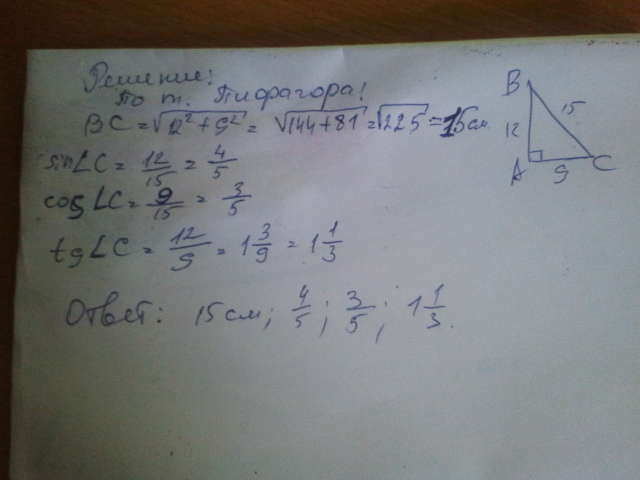 Решение:
По т. Пифагора!
BC = √12² + 9² = √144 + 81 = √225 = 15 см.
sin∠C = 12/15 = 4/5
cos∠C = 9/15 = 3/5
tg∠C = 12/9 = 1 3/9 = 1 1/3
Ответ: 15 см; 4/5; 3/5; 1 1/3.
B
15
12
A
9
C